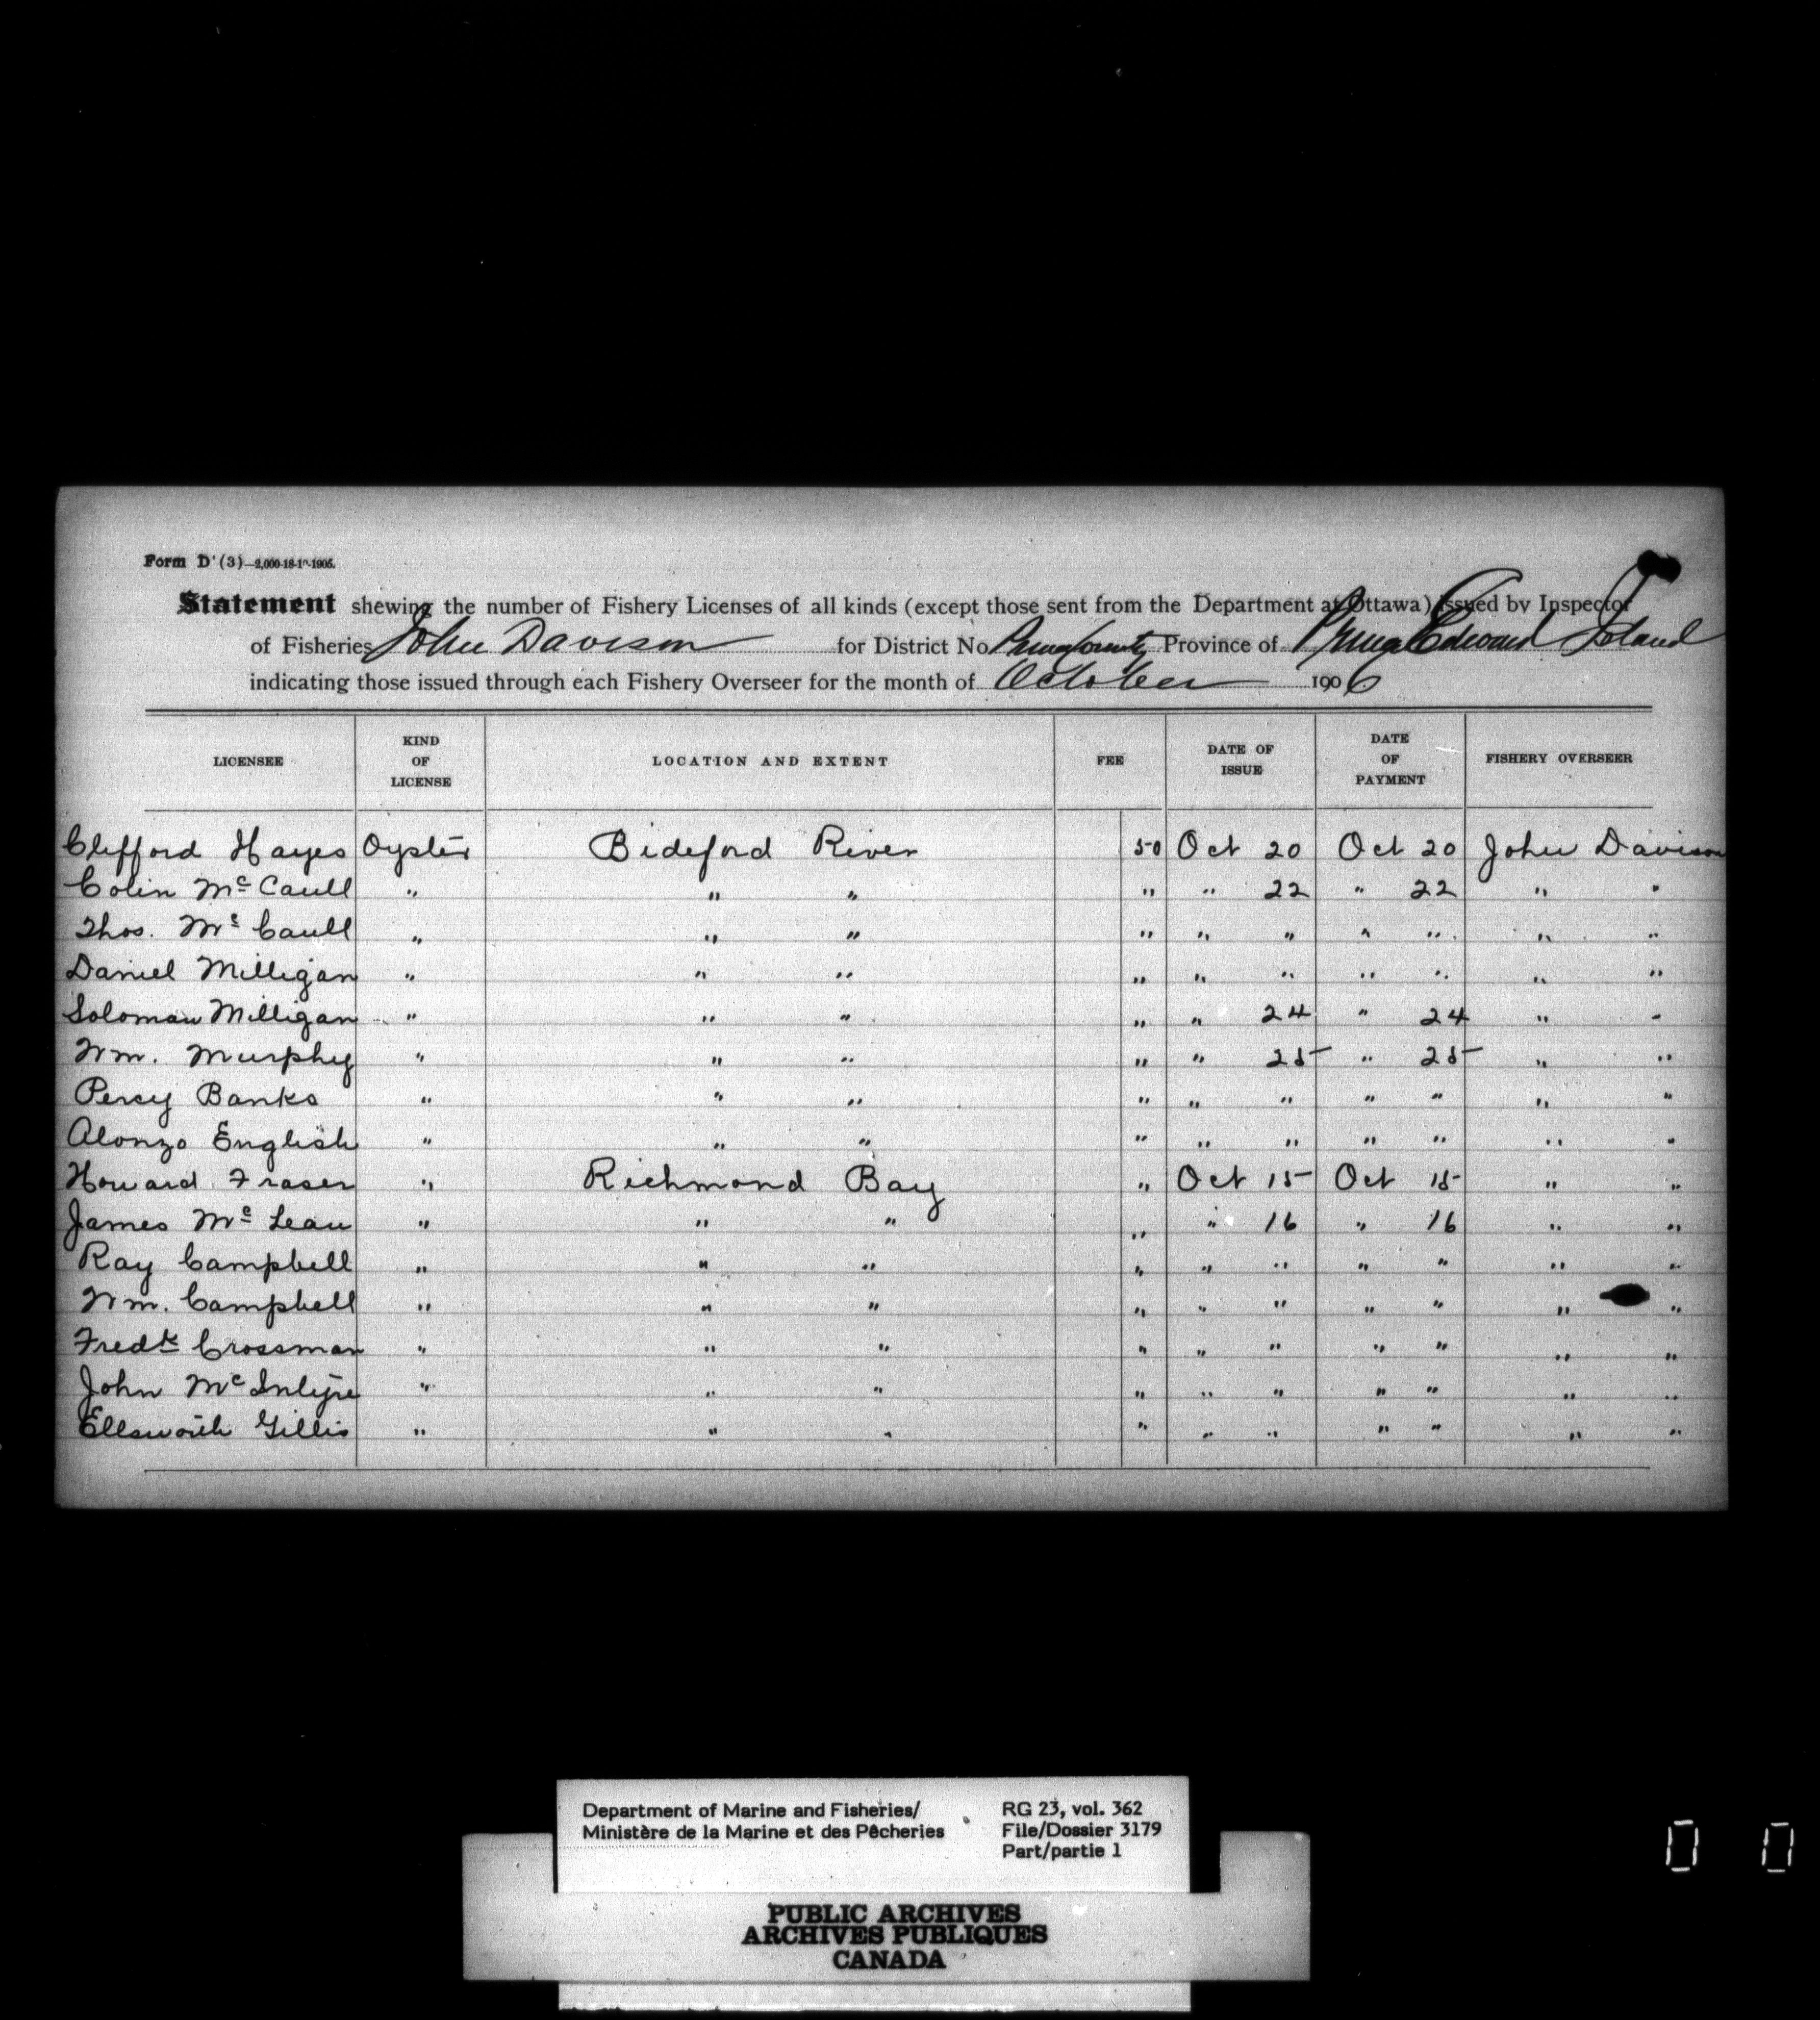 Form D' (3)—2,000-18-10-1905.
Statement shewing the number of Fishery Licenses of all kinds (except those sent from the Department at Ottawa) issued by Inspector
of Fisheries John Davison for District No. Prince County Province of Prince Edward Island
indicating those issued through each Fishery Overseer for the month of October 1906
LICENSEE KIND OF LICENSE LOCATION AND EXTENT FEE DATE OF ISSUE DATE OF PAYMENT FISHERY OVERSEER
Clifford Hayes Oyster Bideford River 50 Oct 20 Oct 20 John Davison
Colin Mc Caull " " " " " 22 " 22 " "
Thos. Mc Caull " " " " " " " " " "
Daniel Milligan " " " " " " " " " "
Soloman Milligan " " " " " 24 " 24 " "
Wm. Murphy " " " " " 25 " 25 " "
Percy Banks " " " " " " " " " "
Alonzo English " " " " " " " " " "
Howard Fraser " Richmond Bay " Oct 15 Oct 15 " "
James Mc Lean " " " " " 16 " 16 " "
Ray Campbell " " " " " " " " " "
Wm. Campbell " " " " " " " " " "
Fredk Crossman " " " " " " " " " "
John Mc Intyre " " " " " " " " " "
Ellsworth Gillis " " " " " " " " " "
Department of Marine and Fisheries/
Ministère de la Marine et des Pêcheries
RG 23, vol. 362
File/Dossier 3179
Part/partie 1
PUBLIC ARCHIVES
ARCHIVES PUBLIQUES
CANADA
0 0